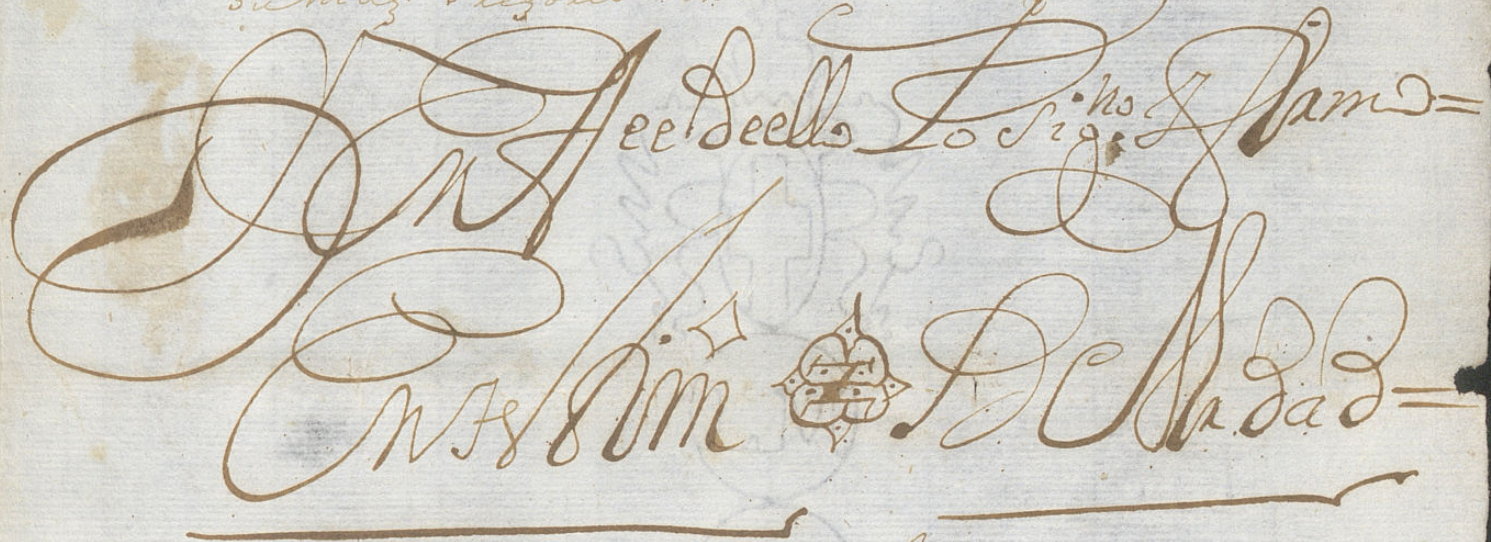 En fee deello Lo Sig.no y firmo=
En testimo De Verdad=